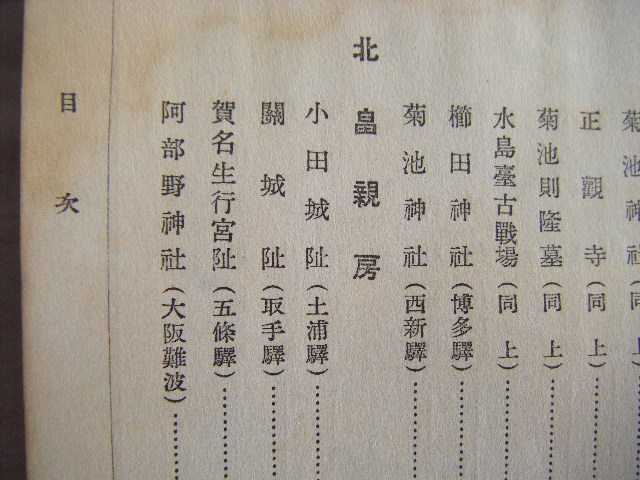 菊池神社(同上)…
正觀寺(同上)…
菊池則隆墓(同上)…
水島臺古戰場(同上)…
櫛田神社(博多驛)…
菊池神社(西新驛)…
北畠親房
小田城阯(土浦驛)…
關城阯(取手驛)…
賀名生行宮阯(五條驛)…
阿部野神社(大阪難波)…
目次